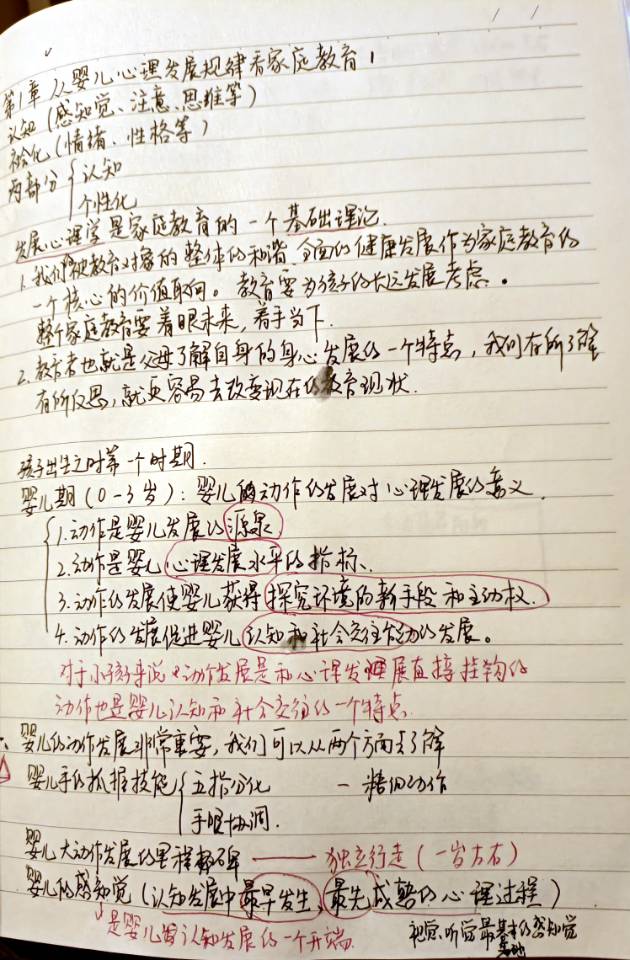 第1章 从婴儿心理发展规律看家庭教育1
认知(感知觉、注意、思维等)
社会化(情绪、性格等)
两部分{认知
个性化
发展心理学是家庭教育的一个基础理论
1.我们把教育对象的整体的和谐 全面的健康发展作为家庭教育的
一个核心的价值取向。教育要为孩子的长远发展考虑。
整个家庭教育要着眼未来,着手当下.
2.教育者也就是父母了解自身的身心发展的一个特点,我们有所了解
有所反思,就更容易去改变现在的教育现状.
孩子出生之时第一个时期.
婴儿期(0-3岁):婴儿的动作的发展对心理发展的意义.
1.动作是婴儿发展的源泉
2.动作是婴儿心理发展水平的指标、
3.动作的发展使婴儿获得探究环境的新手段和主动权.
4.动作的发展促进婴儿认知和社会交往能力的发展。
对于小孩来说,动作发展是和心理发展直接挂钩的
动作也是婴儿认知和社会交往的一个特点.
婴儿的动作发展非常重要,我们可以从两个方面去了解
婴儿手的抓握技能{五指分化 — 精细动作
手眼协调.
婴儿大动作发展的里程碑——独立行走(一岁左右)
婴儿的感知觉(认知发展中最早发生,最先成熟的心理过程)
是婴儿认知发展的一个开端.
视觉、听觉最基本的感知觉
基础